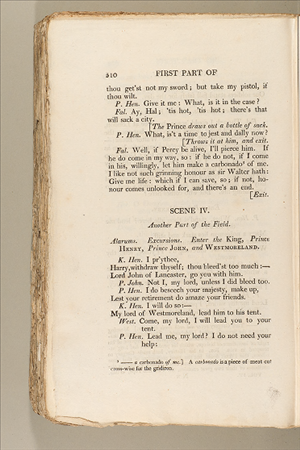 210 FIRST PART OF
thou get'st not my sword; but take my pistol, if
thou wilt.
P. Hen. Give it me: What, is it in the case?
Fal. Ay, Hal; 'tis hot, 'tis hot; there's that
will sack a city.
[The Prince draws out a bottle of sack.
P. Hen. What, is't a time to jest and dally now?
[Throws it at him, and exit.
Fal. Well, if Percy be alive, I'll pierce him. If
he do come in my way, so: if he do not, if I come
in his, willingly, let him make a carbonado⁹ of me.
I like not such grinning honour as sir Walter hath:
Give me life: which if I can save, so; if not, ho-
nour comes unlooked for, and there's an end.
[Exit.
SCENE IV.
Another Part of the Field.
Alarums. Excursions. Enter the King, Prince
Henry, Prince John, and Westmoreland.
K. Hen. I pr'ythee,
Harry, withdraw thyself; thou bleed'st too much:—
Lord John of Lancaster, go you with him.
P. John. Not I, my lord, unless I did bleed too.
P. Hen. I do beseech your majesty, make up,
Lest your retirement do amaze your friends.
K. Hen. I will do so:—
My lord of Westmoreland, lead him to his tent.
West. Come, my lord, I will lead you to your
tent.
P. Hen. Lead me, my lord? I do not need your
help:
⁹ —— a carbonado of me.] A carbonado is a piece of meat cut
cross-wise for the gridiron.